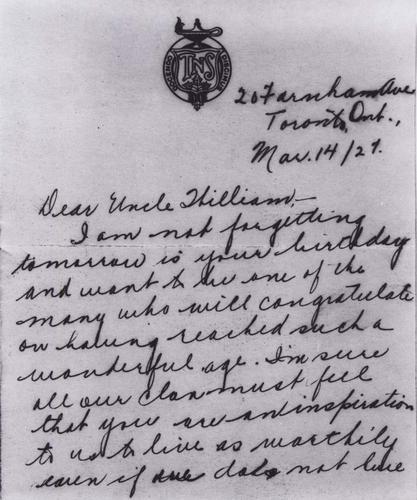 DOCENDO DISCIMUS
TNS
20 Farnham Ave
Toronto, Ont.,
Mar. 14/27.
Dear Uncle William,-
I am not forgetting
tomorrow is your birthday
and want to be one of the
many who will congratulate
on having reached such a
wonderful age. I'm sure
all our clan must feel
that you are an inspiration
to us to live as worthily
even if not live